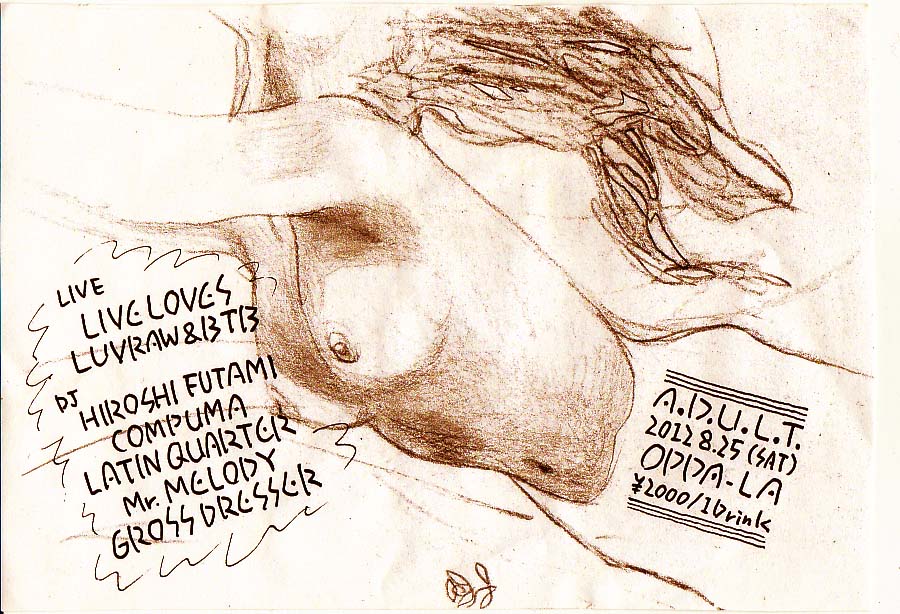 LIVE
LIVE LOVES
LUVRAW & BTB
DJ
HIROSHI FUTAMI
COMPUMA
LATIN QUARTER
Mr. MELODY
GROSS DRESSER
A.D.U.L.T.
2012 8.25 (SAT)
OPPA-LA
¥2000/1Drink